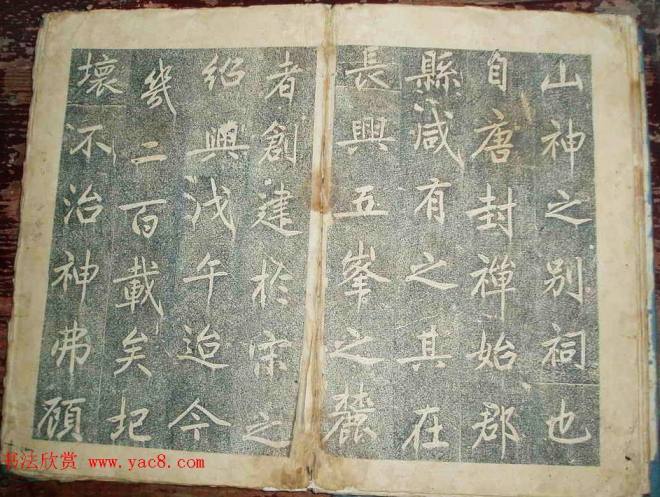 山神之别祠也
自唐封禪始郡
縣咸有之其在
長興五峯之麓
者創建於宋之
紹興戊午迨今
幾二百載矣圮
壞不治神弗顧
书法欣赏 www.yac8.com